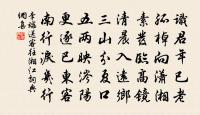 識君年已老
孤棹向瀟湘
素髮臨高鏡
清晨入遠鄉
三山分夏口
五兩映涔陽
更逐巴東客
南行淚幾行
李端送客往湘江詞典
網集